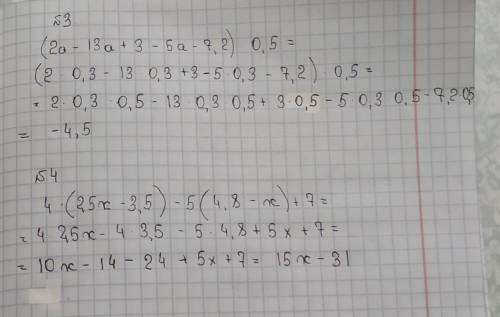 №3
(2a - 13a + 3 - 5a - 7,2) 0,5 =
(2 · 0,3 - 13 0,3 + 3 - 5 · 0,3 - 7,2) · 0,5 =
= 2 · 0,3 · 0,5 - 13 · 0,3 0,5 + 3 · 0,5 - 5 · 0,3 0,5 - 7,2 · 0,5
= -4,5
№4
4 · (2,5x - 3,5) - 5(4,8 - x) + 7 =
= 4 2,5x - 4 · 3,5 - 5 · 4,8 + 5x + 7 =
= 10x - 14 - 24 + 5x + 7 = 15x - 31